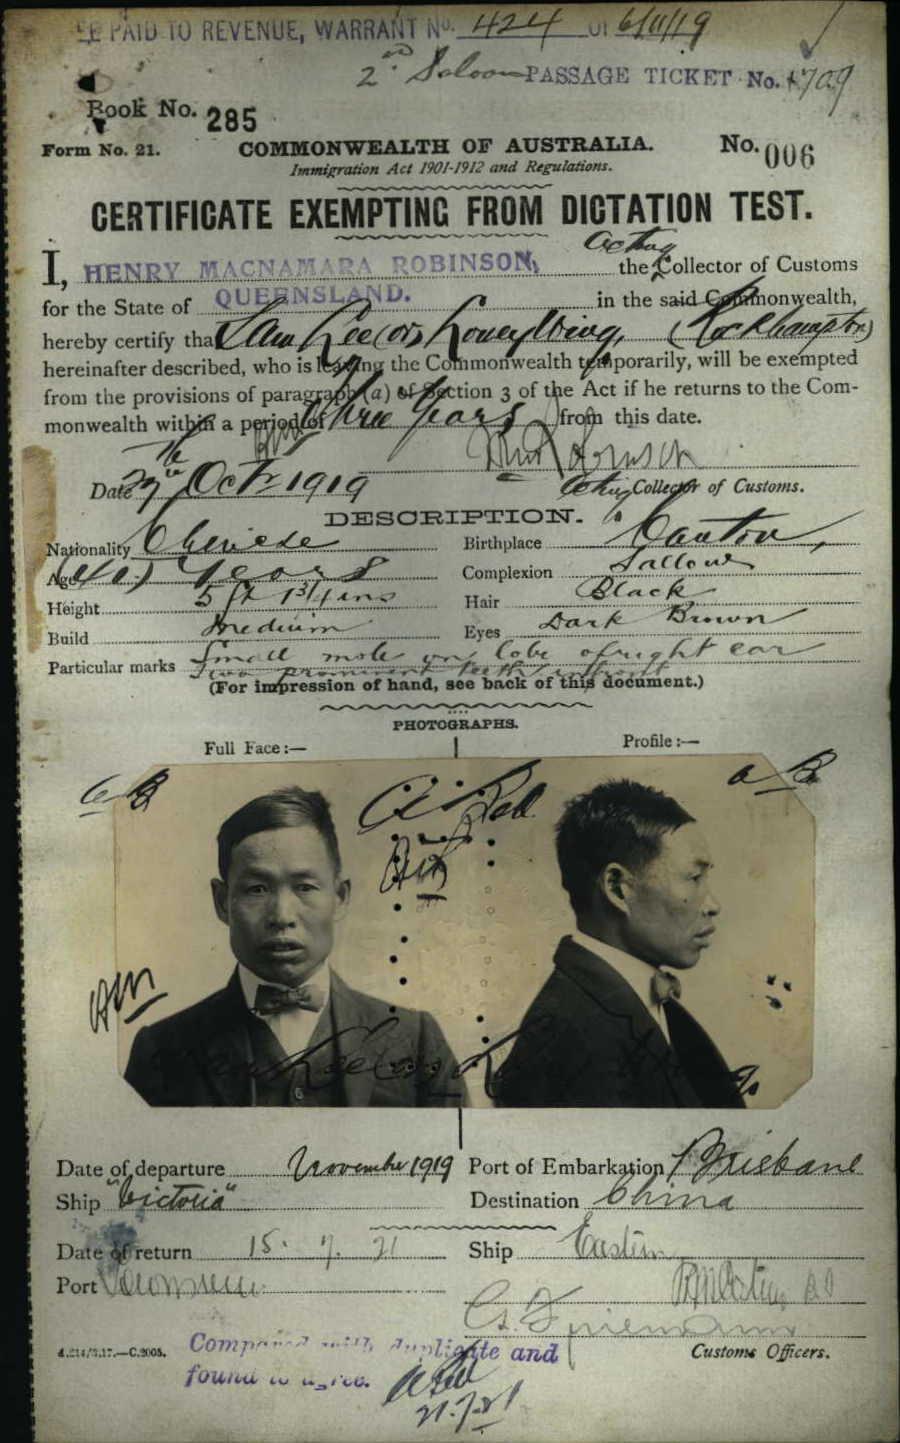 PAID TO REVENUE, WARRANT No. 424 OF 6/11/19
2nd Saloon PASSAGE TICKET No. 1709
Book No. 285
Form No. 21. COMMONWEALTH OF AUSTRALIA. No. 006
Immigration Act 1901-1912 and Regulations.
CERTIFICATE EXEMPTING FROM DICTATION TEST.
Acting
I, HENRY MACNAMARA ROBINSON, the Collector of Customs
for the State of QUEENSLAND. in the said Commonwealth,
hereby certify that Sam Lee (or) (Rockhampton)
hereinafter described, who is leaving the Commonwealth temporarily, will be exempted
from the provisions of paragraph (a) of Section 3 of the Act if he returns to the Com-
monwealth within a period of Three Years from this date.
HMRobinson
Date Oct 1919 Acting Collector of Customs.
DESCRIPTION.
Nationality Chinese Birthplace Canton,
Age (40) Years Complexion Sallow
Height 5 ft 1 3/4 ins Hair Black
Build Medium Eyes Dark Brown
Particular marks Small mole on lobe of right ear
Two prominent teeth in front
(For impression of hand, see back of this document.)
PHOTOGRAPHS.
Full Face:— Profile:—
Date of departure November 1919 Port of Embarkation Brisbane
Ship "Victoria" Destination China
Date of return 15. 7. 21 Ship Eastern
Port
Customs Officers.
4.214/3.17.—C.2005.
Compared with duplicate and
found to agree.
21.7.21